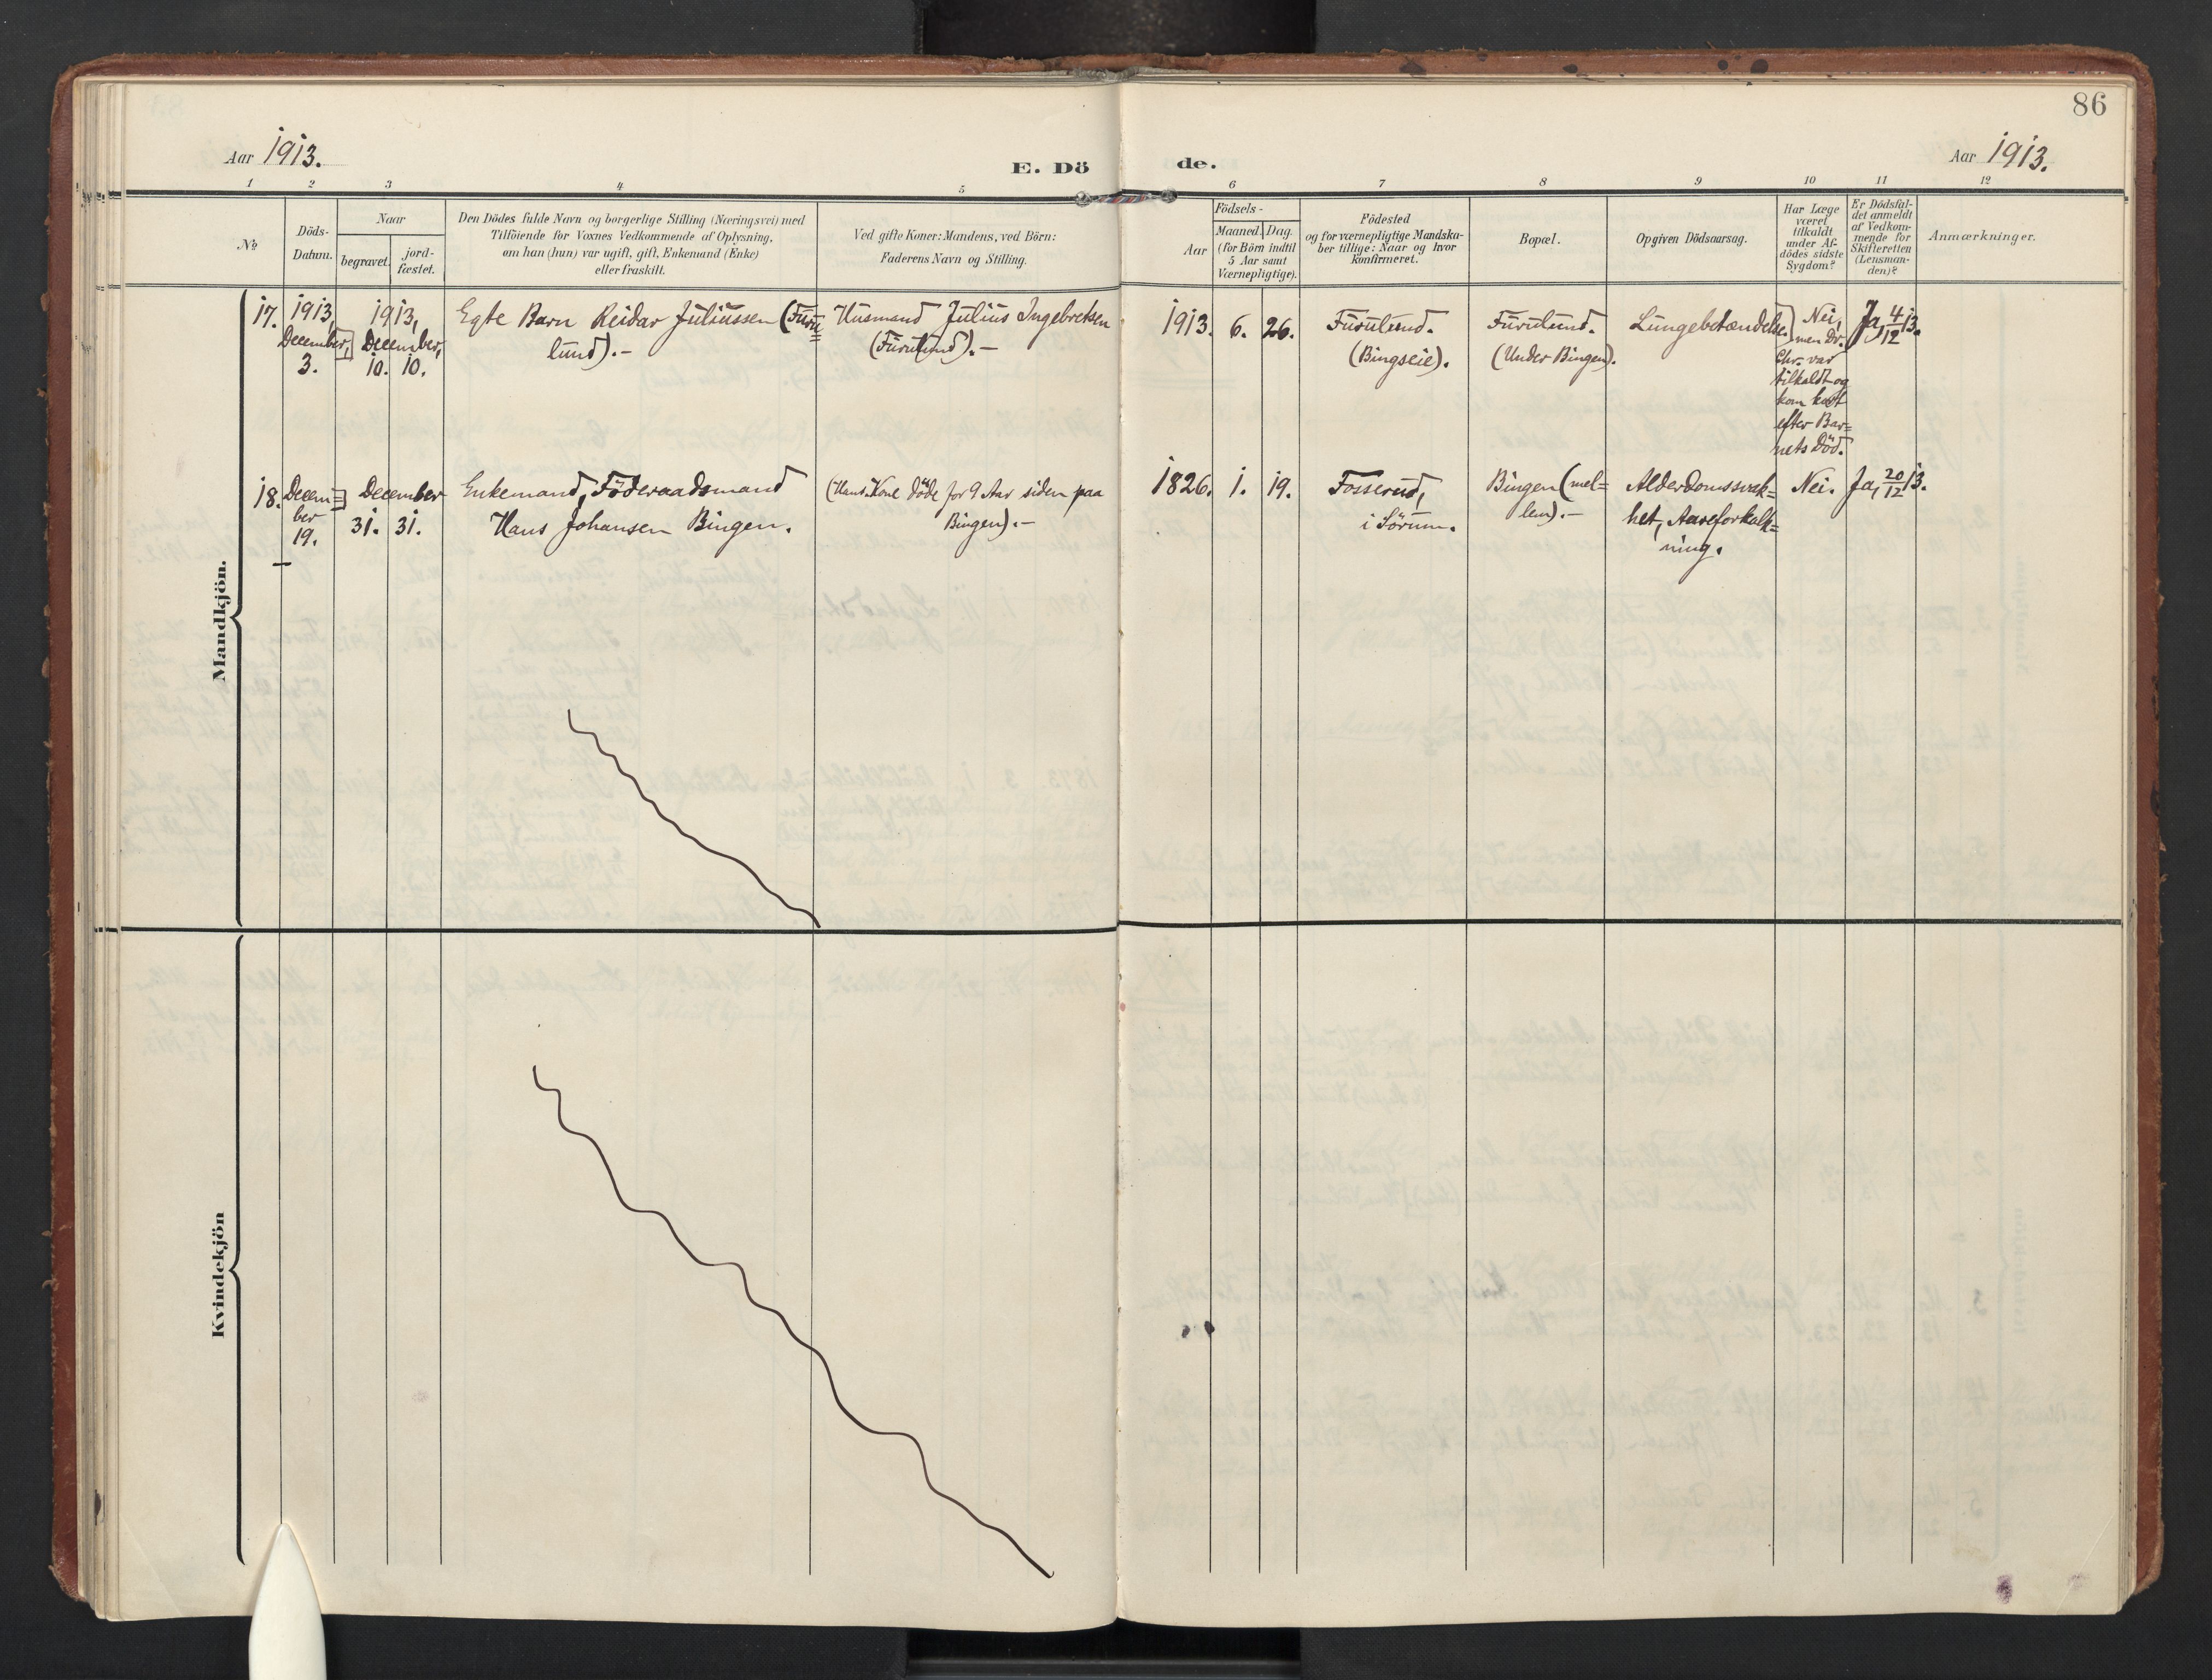 86
Aar 1913.
E. Dö de.
Aar 1913.
1 2 3 4 5 6 7 8 9 10 11 12
No
Döds-
Datum.
Naar
begravet.
jord-
fæstet.
Den Dödes fulde Navn og borgerlige Stilling (Næringsvei) med
Tilföiende for Voxnes Vedkommende af Oplysning,
om han (hun) var ugift, gift, Enkemand (Enke)
eller fraskilt.
Ved gifte Koner: Mandens, ved Börn:
Faderens Navn og Stilling.
Födsels-
Aar
Maaned. Dag.
(for Börn indtil
5 Aar samt
Værnepligtige).
Födested
og for værnepligtige Mandska-
ber tillige: Naar og hvor
konfirmeret.
Bopæl.
Opgiven Dödsaarsag.
Har Læge
været
tilkaldt
under Af-
dödes sidste
Sygdom?
Er Dödsfal-
det anmeldt
af Vedkom-
mende for
Skifteretten
(Lensman-
den)?
Anmærkninger.
Mandkjön.
17.
1913,
December,
3.
1913,
December,
10. 10.
Egte Barn Reidar Juliussen (Furu=
lund).-
Husmand Julius Ingebretsen
(Furulund).-
1913. 6. 26.
Furulund.
(Bingseie).
Furulund.
(Under Bingen).
Lungebetændelse.
Nei,
men Dr.
Chr. var
tilkaldt og
kom kort
efter Bar=
nets Död.
Ja, 4/12 13.
18.
Decem=
ber
19.
December
31. 31.
Enkemand, Föderaadsmand
Hans Johansen Bingen.
(Hans Kone döde for 9 Aar siden paa
Bingen).-
1826. 1. 19.
Fosserud,
i Sörum.
Bingen (mel=
lem).-
Alderdomssvak=
het, Aareforkalk=
ning.
Nei.
Ja, 20/12 13.
Kvindekjön